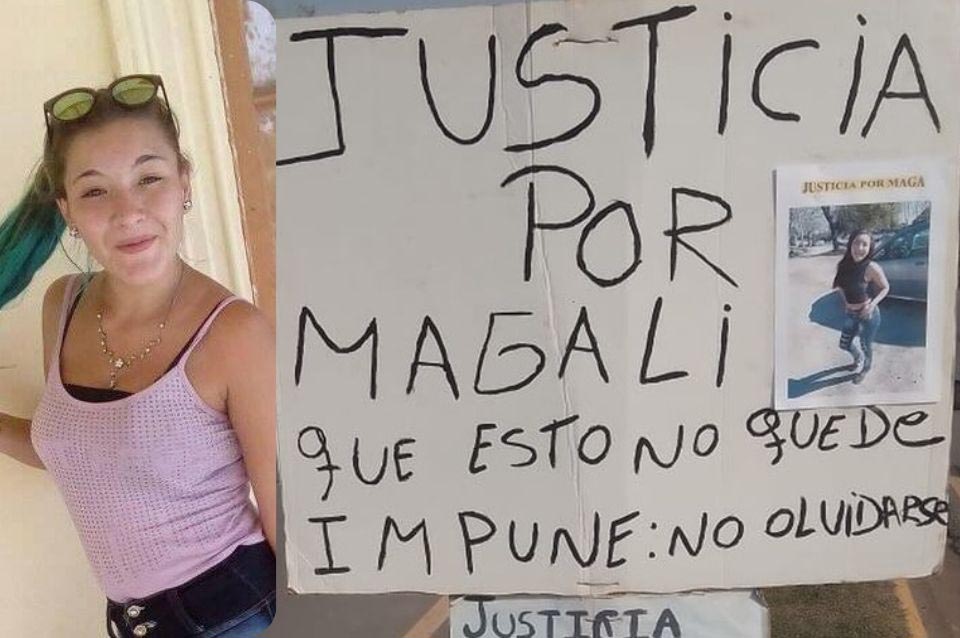 JUSTICIA
POR
MAGALI
QUE ESTO NO QUEDE
IMPUNE: NO OLVIDARSE
JUSTICIA POR MAGA
JUSTICIA